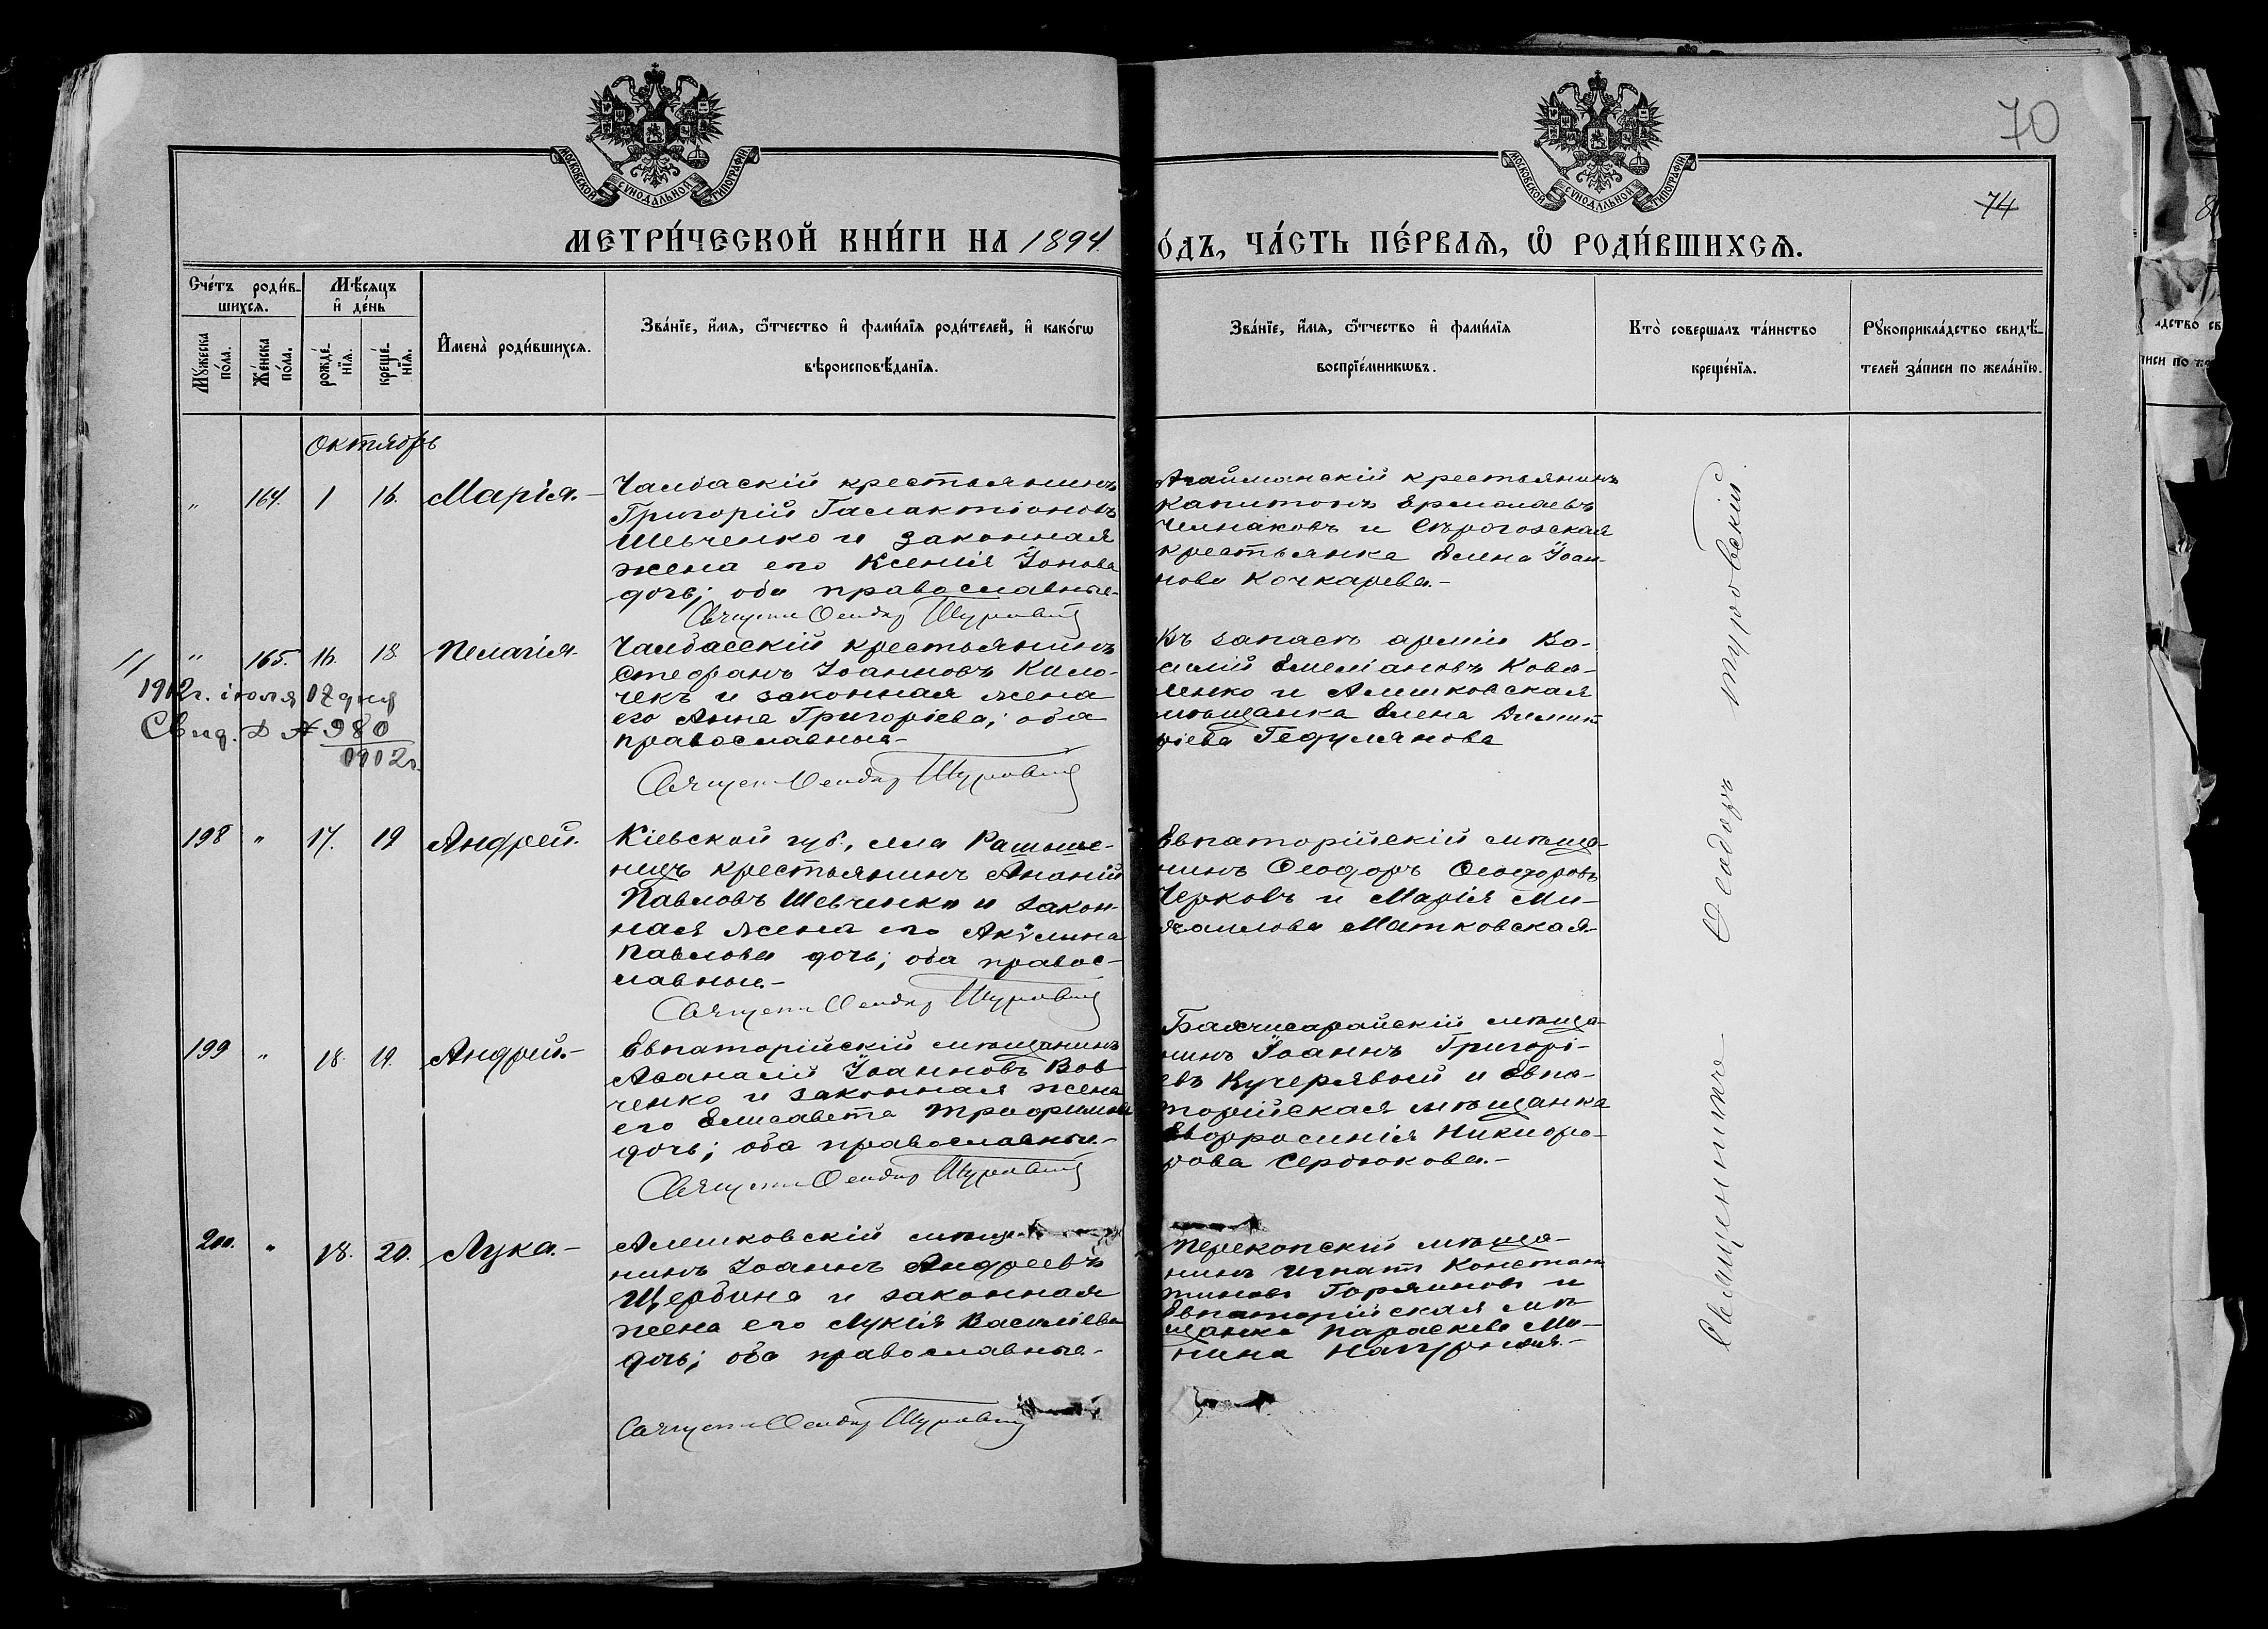 70
74
МОСКОВСКОЙ СѴНОДАЛЬНОЙ ТИПОГРАФІИ
МОСКОВСКОЙ СѴНОДАЛЬНОЙ ТИПОГРАФІИ
МЕТРИ́ЧЕСКОЙ КНИ́ГИ НА 1894 О́ДЪ, ЧА́СТЬ ПЕ́РВАѦ, Ѡ҆ РОДИ́ВШИХСѦ.
Сче́тъ роди́в-
шихсѧ.
Мѣ́сѧцъ
и҆ де́нь
Мꙋ́жеска
по́ла.
Же́нска
по́ла.
рожде́-
нїѧ.
креще́-
нїѧ.
И҆мена̀ роди́вшихсѧ.
Зва́нїе, и҆́мѧ, ѻ҆́тчество и҆ фами́лїѧ роди́телей, и҆ како́гѡ
вѣроисповѣ́данїѧ.
Зва́нїе, и҆́мѧ, ѻ҆́тчество и҆ фами́лїѧ
воспрїе́мникѡвъ.
Кто̀ соверша́лъ та́инство
креще́нїѧ.
Рꙋкоприкла́дство свидѣ́-
телей за́писи по жела́нїю.
Октябрь
" 164. 1 16. Марія.-
Чалбаскій крестьянинъ
Григорій Галактіоновъ
Шевченко и законная
жена его Ксенія Іонова
дочь; оба православные.-
Священ Ѳеодор Туровскій
Агайманскій крестьянинъ
Капитонъ Ермолаевъ
Челнаковъ и Сѣрогозская
крестьянка Елена Іоан-
нова Кочкарева.-
" 165. 16. 18. Пелагія.
1912г. іюля 17 дня
Свид. № 980
1912г.
Чалбасскій крестьянинъ
Стефанъ Іоанновъ Кило-
чекъ и законная жена
его Анна Григоріева; оба
православные-
Священ Ѳеодор Туровскій
Въ запасѣ арміи Ва-
силій Емеліановъ Кова-
ленко и Алешковская
мѣщанка Елена Димит
ріева Гедулянова
198 " 17. 19 Андрей.
Кіевской губ., Ананій
крестьянинъ
Павловъ Шевченко и закон-
ная жена его Акѵлина
Павлова дочь; оба правос-
лавные.-
Священ Ѳеодор Туровскій
Евпаторійскій мѣща-
нинъ Ѳеодоръ Ѳеодоровъ
Черковъ и Марія Ми-
хаилова Матковская.-
199 " 18. 19. Андрей.-
Евпаторійскій мѣщанинъ
Аѳанасій Іоанновъ Вов-
ченко и законная жена
его Елисавета Трофимова
дочь; оба православные.-
Священ Ѳеодор Туровскій
Бахчисарайскій мѣща-
нинъ Іоаннъ Григорі-
евъ Кучерявый и Евпа-
торійская мѣщанка
Евфросинія Никифо-
рова Сердюкова.-
200. " 18. 20. Лука.-
Алешковскій мѣща-
нинъ Іоаннъ Андреевъ
Щербина и законная
жена его Лукія Василіева
дочь; оба православные.-
Священ Ѳеодор Туровскій
Перекопскій мѣща-
нинъ Игнатъ Констан
тиновъ Горяиновъ и
Евпаторійская мѣ
щанка Параскева Ми-
нина
Священникъ Ѳеодоръ Туровскій